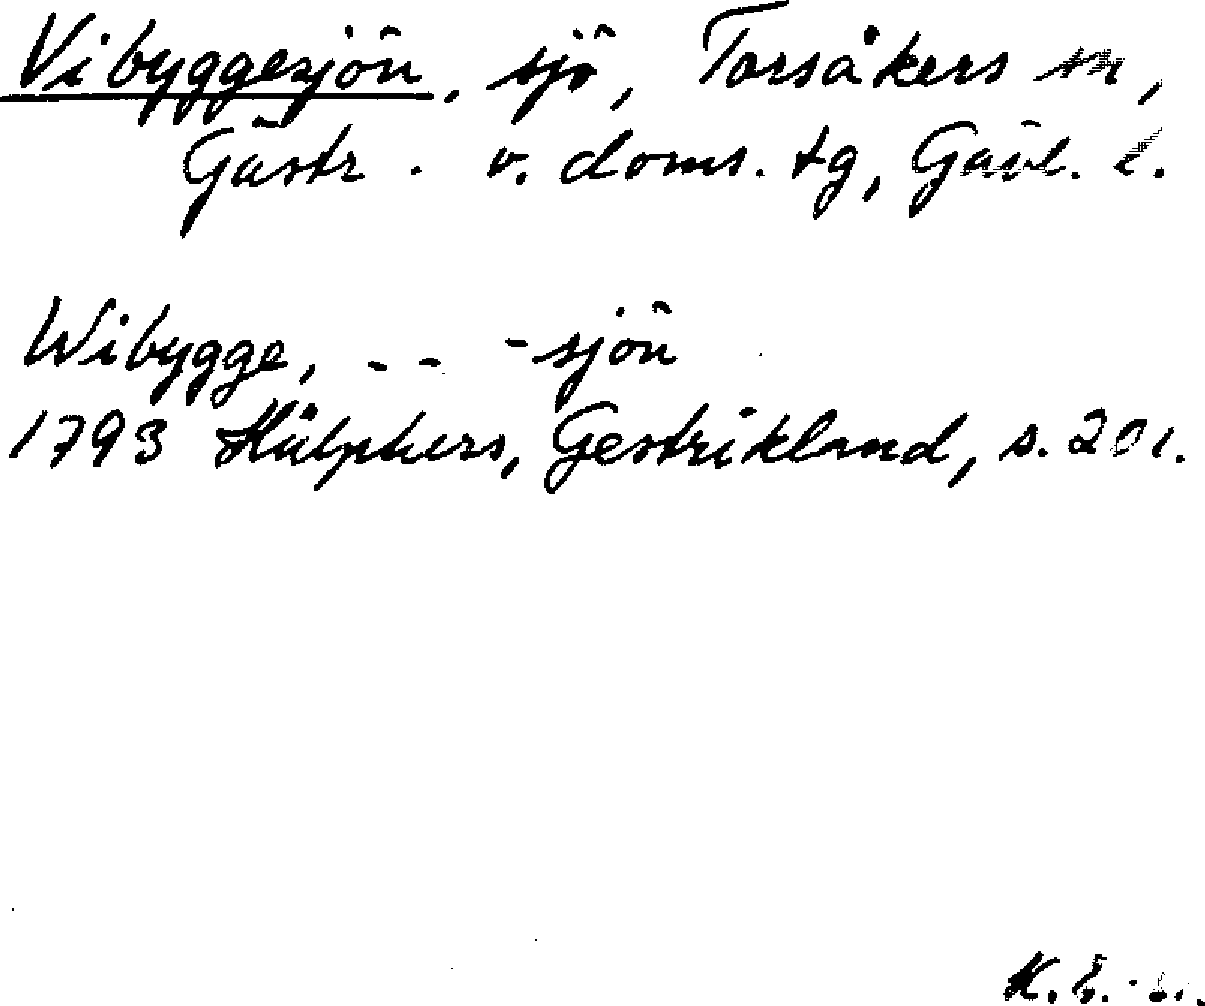 Vibyggesjön, sjö, Torsåkers sn,
Gästr. v. doms. tg, Gävl. l.
Wibygge, - - -sjön
1793 Hülphers, Gestrikland, s. 201.